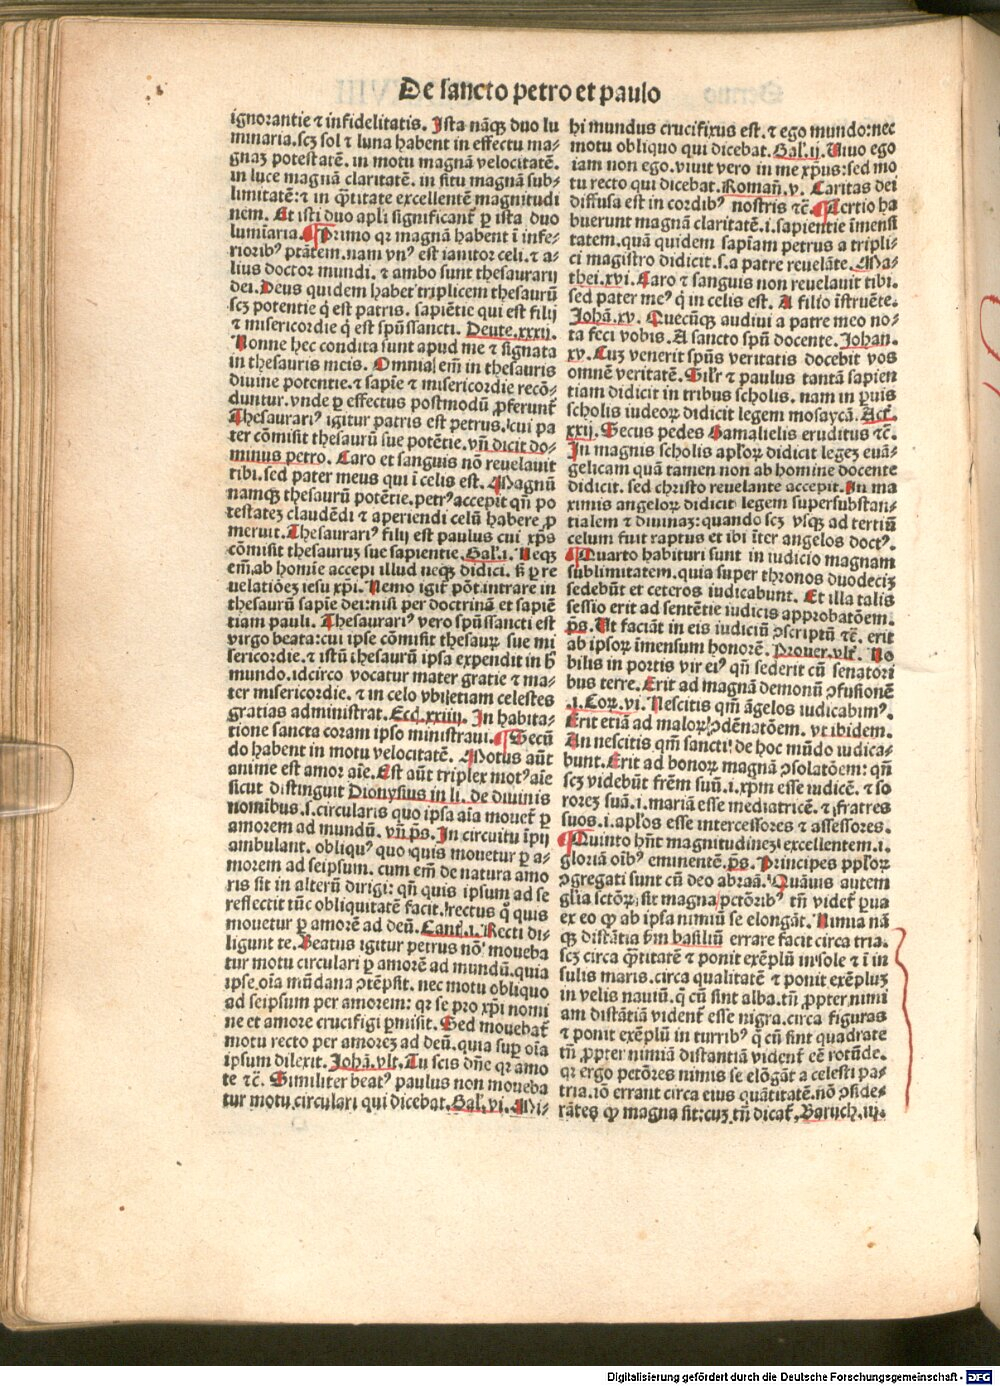 De sancto petro et paulo
ignorantie ⁊ infidelitatis. Ista nāqꝫ duo lu
minaria.scꝫ sol ⁊ luna habent in effectu ma⸗
gnaꝫ potestatē. in motu magnā velocitatē.
in luce magnā claritatē. in situ magnā sub⸗
limitatē:⁊ in q̄titate excellentē magnitudi
nem. Et isti duo apli significant̄ ꝑ ista duo
lumiaria. ¶Primo qꝛ magnā habent ī infe⸗
rioribꝰ ptātem.nam vnꝰ est ianitor celi.⁊ a⸗
lius doctor mundi. ⁊ ambo sunt thesaurarij
dei. Deus quidem habet triplicem thesaurū
scꝫ potentie q̄ est patris. sapiētie qui est filij
⁊ misericordie q̄ est spūssancti. Deute.xxxij.
Nonne hec condita sunt apud me ⁊ signata
in thesauris meis. Omnia em̄ in thesauris
diuine potentie.⁊ sapie ⁊ misericordie recō⸗
duntur.vnde ꝑ effectus postmodū ꝓferunt̄
Thesaurariꝰ igitur patris est petrus.cui pa
ter cōmisit thesaurū sue potētie.vn̄ dicit do⸗
minus petro. Caro et sanguis nō reuelauit
tibi.sed pater meus qui ī celis est. Magnū
namqꝫ thesaurū potētie.petrꝰ accepit qn̄ po
testateꝫ claudēdi ⁊ aperiendi celū habere ꝓ
meruit.Thesaurariꝰ filij est paulus cui xp̄s
cōmisit thesauruꝫ sue sapientie.Gal̓.i. Neqꝫ
em̄.ab homīe accepi illud neqꝫ didici. sꝫ ꝑ re
uelatiōeꝫ iesu xp̄i. Nemo igit̄ pōt.intrare in
thesaurū sapīe dei:nisi per doctrinā et sapiē
tiam pauli. Thesaurariꝰ vero spūssancti est
virgo beata:cui ipse cōmisit thesauꝝ sue mi
sericordie.⁊ istū thesaurū ipsa expendit in h̄
mundo.idcirco vocatur mater gratie ⁊ ma⸗
ter misericordie. ⁊ in celo vbi letiam celestes
gratias administrat. Eccī.xxiiij. In habita⸗
tione sancta coram ipso ministraui. ¶Secū
do habent in motu velocitatē. Motus aūt
anime est amor aīe.Est aūt triplex motꝰ aīe
sicut distinguit Dionysius in li. de diuinis
nomibus.s.circularis quo ipsa aīa mouet̄ ꝑ
amorem ad mundū. vn̄ ps̄. In circuitu īpij
ambulant. obliquꝰ quo quis mouetur ꝑ a⸗
morem ad seipsum. cum em̄ de natura amo
ris sit in alterū dirigi: qn̄ quis ipsum ad se
reflectit tūc obliquitatē facit. rectus q̊ quis
mouetur ꝑ amorē ad deū. Cant̄.i. Recti di⸗
ligunt te. Beatus igitur petrus nō moueba
tur motu circulari ꝑ amorē ad mundū.quia
ipse oīa mūdana ꝯtēpsit. nec motu obliquo
ad seipsum per amorem: qꝛ se pro xp̄i nomi
ne et amore crucifigi ꝑmisit. Sed mouebat̄
motu recto per amoreꝫ ad deū.quia suꝑ oīa
ipsum dilexit. Johā.vlt. Tu scis dn̄e qꝛ amo
te ⁊c̄. Similiter beatꝰ paulus non moueba
tur motu circulari qui dicebat.Gal̓.vi. Mi⸗
hi mundus crucifixus est.⁊ ego mundo:nec
motu obliquo qui dicebat.Gal̓.ij.Uiuo ego
iam non ego.viuit vero in me xp̄us:sed mo
tu recto qui dicebat.Roman̄.v. Caritas dei
diffusa est in cordibꝰ nostris ⁊c̄.¶Tertio ha
buerunt magnā claritatē.i.sapientie īmensi
tatem.quā quidem sapiam petrus a tripli⸗
ci magistro didicit.s.a patre reuelāte.Ma⸗
thei.xvi. Caro ⁊ sanguis non reuelauit tibi.
sed pater meꝰ q̄ in celis est. A filio īstruēte.
Johā.xv. Quecūqꝫ audiui a patre meo no⸗
ta feci vobis. A sancto spū docente. Johan.
xv. Cuꝫ venerit spūs veritatis docebit vos
omnē veritatē. Sil̓r ⁊ paulus tantā sapien
tiam didicit in tribus scholis. nam in ꝑuis
scholis iudeoꝝ didicit legem mosaycā. Act̄.
xxij. Secus pedes Gamalielis eruditus ⁊c̄.
In magnis scholis apl̓oꝝ didicit legeꝫ euā⸗
gelicam quā tamen non ab homine docente
didicit. sed christo reuelante accepit. In ma
ximis angeloꝝ didicit legem supersubstan⸗
tialem ⁊ diuinaꝫ:quando scꝫ vsqꝫ ad tertiū
celum fuit raptus et ibi īter angelos doctꝰ.
¶Quarto habituri sunt in iudicio magnam
sublimitatem.quia super thronos duodecīꝫ
sedebūt et ceteros iudicabunt. Et illa talis
sessio erit ad sentētie iudicis approbatōem.
ps̄. Ut faciāt in eis iudiciū ꝯscriptū ⁊c̄. erit
ab ipsoꝝ imensum honorē. Prouer.vlt̄. No
bilis in portis vir eiꝰ qn̄ sederit cū senatori
bus terre. Erit ad magnā demonū ꝯfusionē
.i.Coꝝ.vi. Nescitis qm̄ āgelos iudicabimꝰ.
Erit etiā ad maloꝝ ꝯdēnatōem. vt ibidem.
An nescitis qm̄ sancti de hoc mūdo iudica⸗
bunt. Erit ad honoꝝ magnā ꝯsolatōem: qn̄
scꝫ videbūt frēm suū.i.xp̄m esse iudicē. ⁊ so
roreꝫ suā.i.mariā esse mediatricē. ⁊ fratres
suos.i.apl̓os esse intercessores ⁊ assessores.
¶Quinto hn̄t magnitudineꝫ excellentem.i.
gloriā oībꝰ eminentē.ps̄. Principes ppl̓oꝝ
ꝯgregati sunt cū deo abraā. Quāuis autem
gl̓ia sctōꝝ sit magna pctōribꝰ tn̄ videt̄ ꝑua
ex eo ꝙ ab ipsa nimiū se elongāt. Nimia nā
qꝫ distātia fm̄ basiliū errare facit circa tria.
scꝫ circa q̄titatē ⁊ ponit exēplū in sole ⁊ ī in
sulis maris. circa qualitatē ⁊ ponit exēpluꝫ
in velis nauiū. q̄ cū sint alba.tn̄ ꝓpter nimi
am distātiā vident̄ esse nigra.circa figuras
⁊ ponit exēplū in turribꝰ q̄ cū sint quadrate
tn̄ ꝓpter nimiā distantiā vident̄ eē rotūde.
qꝛ ergo pctōres nimis se elōgāt a celesti pa⸗
tria.iō errant circa eius quātitatē.nō ꝯside⸗
rātes ꝙ magna sit:cuꝫ tn̄ dicat̄. Baruch.iij.
Digitalisierung gefördert durch die Deutsche Forschungsgemeinschaft - DFG